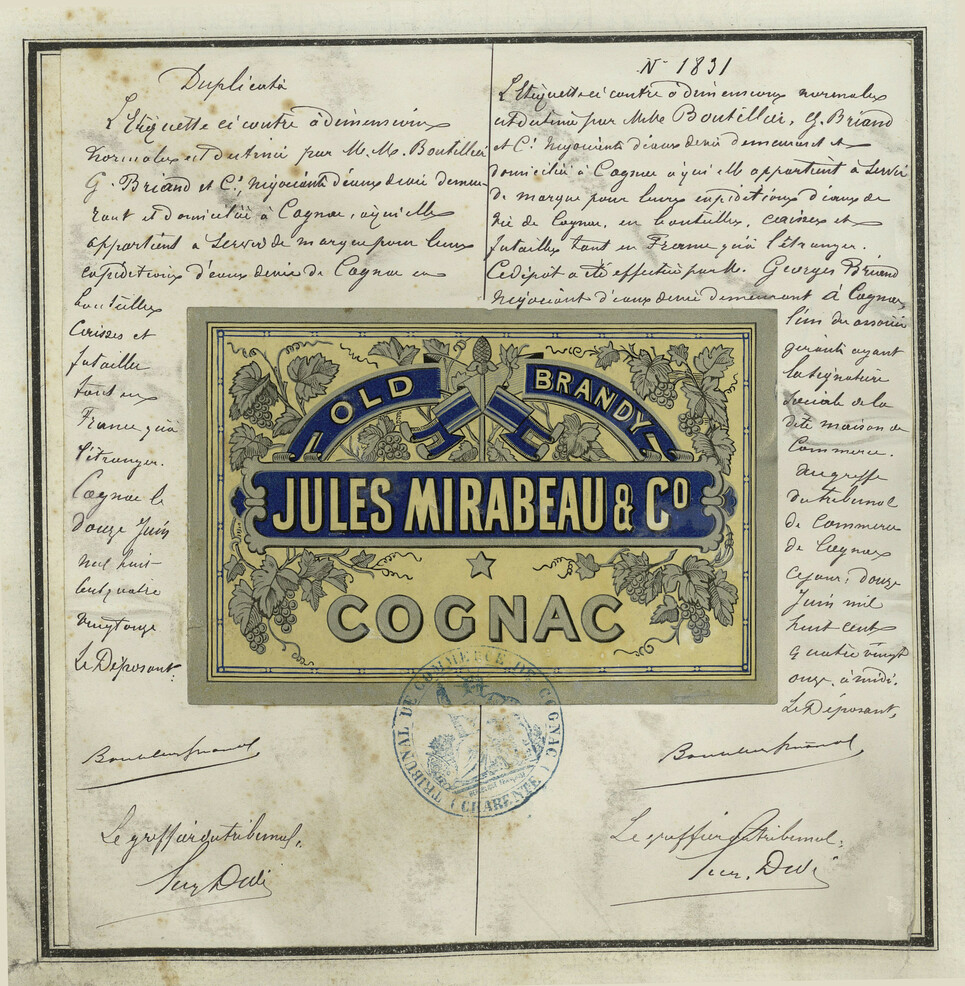 Duplicata
L'Etiquette ci contre à dimensions
normales est destinée par M.M. Boutillier
G. Briand et Cie, négociants d'eaux de vie demeu-
rant et domiciliés à Cognac, à qui elle
appartient à servir de marque pour leurs
expéditions d'eaux de vie de Cognac en
bouteilles
Caisses et
futailles
tant en
France qu'à
l'étranger.
Cognac le
douze Juin
mil huit
cent quatre
vingt onze
Le Déposant:
Le greffier du tribunal,
N° 1831
L'Etiquette ci contre à dimensions normales
est destinée par MM. Boutillier, G. Briand
et Cie négociants d'eaux de vie demeurant et
domiciliés à Cognac à qui elle appartient à servir
de marque pour leurs expéditions d'eaux de
vie de Cognac, en bouteilles, caisses et
futailles tant en France qu'à l'étranger.
Ce dépôt a été effectué par M. Georges Briand
négociant d'eaux de vie demeurant à Cognac,
l'un des associés
gérants ayant
la signature
sociale de la
dite maison de
Commerce.
Au greffe
du tribunal
de Commerce
de Cognac
ce jour, douze
Juin mil
huit cent
quatre vingt
onze, à midi.
Le Déposant,
Le greffier du tribunal,
OLD BRANDY
JULES MIRABEAU & Co
COGNAC
TRIBUNAL DE COMMERCE DE COGNAC
(CHARENTE)